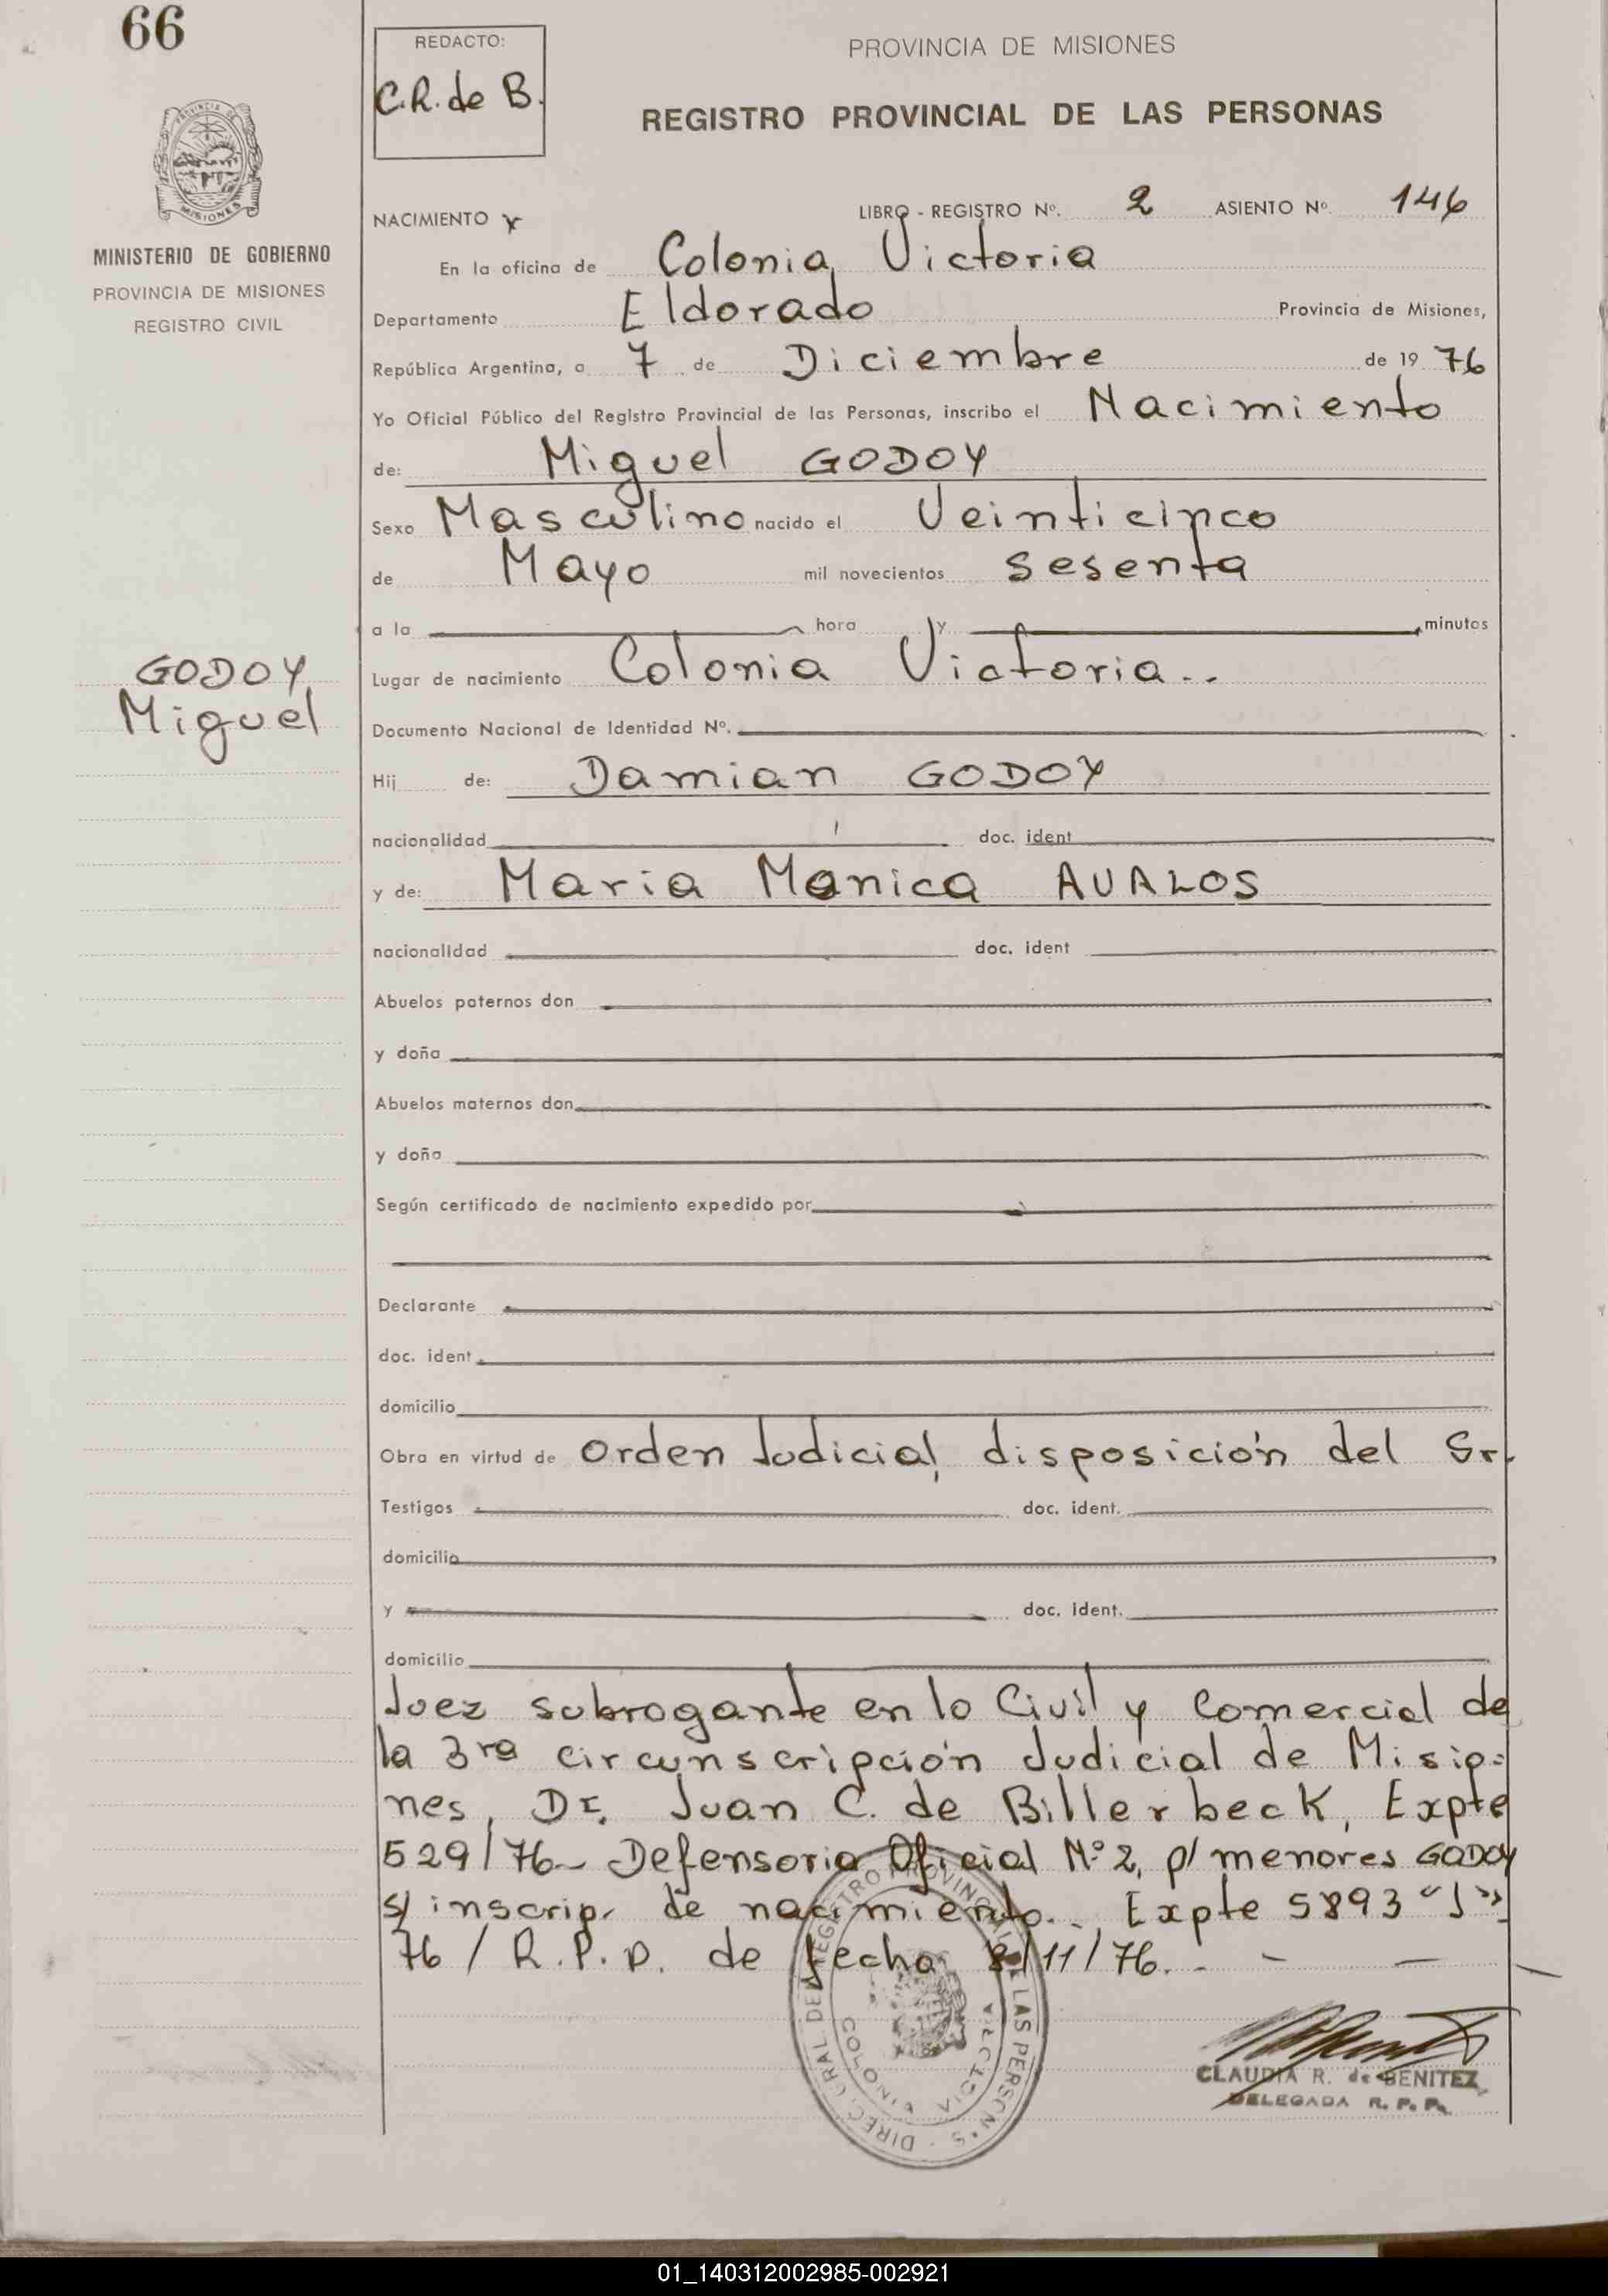 66
REDACTO:
C.R. de B.
PROVINCIA DE MISIONES
REGISTRO PROVINCIAL DE LAS PERSONAS
MISIONES
MINISTERIO DE GOBIERNO
PROVINCIA DE MISIONES
REGISTRO CIVIL
NACIMIENTO x LIBRO - REGISTRO Nº. 2 ASIENTO Nº 146
En la oficina de Colonia Victoria
Departamento Eldorado Provincia de Misiones,
República Argentina, a 7 de Diciembre de 19 76
Yo Oficial Público del Registro Provincial de las Personas, inscribo el Nacimiento
de: Miguel GODOY
Sexo Masculino nacido el Veinticinco
de Mayo mil novecientos sesenta
a la hora y minutos
GODOY
Miguel
Lugar de nacimiento Colonia Victoria..
Documento Nacional de Identidad Nº.
Hij de: Damian GODOY
nacionalidad doc. ident
y de: Maria Monica AVALOS
nacionalidad doc. ident
Abuelos paternos don
y doña
Abuelos maternos don
y doña
Según certificado de nacimiento expedido por
Declarante
doc. ident
domicilio
Obra en virtud de Orden Judicial, disposición del Sr.
Testigos doc. ident.
domicilio
y doc. ident.
domicilio
Juez subrogante en lo Civil y Comercial de
la 3ra circunscripción Judicial de Misio=
nes, Dr. Juan C. de Billerbeck, Expte
529/76- Defensoria Oficial Nº 2, p/ menores GODOY
s/ inscrip. de nacimiento.. Expte 5893 "J"
76 / R.P.P. de fecha 8/11/76.- - -
DIREC. GRAL DEL REGISTRO PROVINCIAL DE LAS PERSONAS
COLONIA VICTORIA
CLAUDIA R. de BENITEZ
DELEGADA R. P. P.
01_140312002985-002921